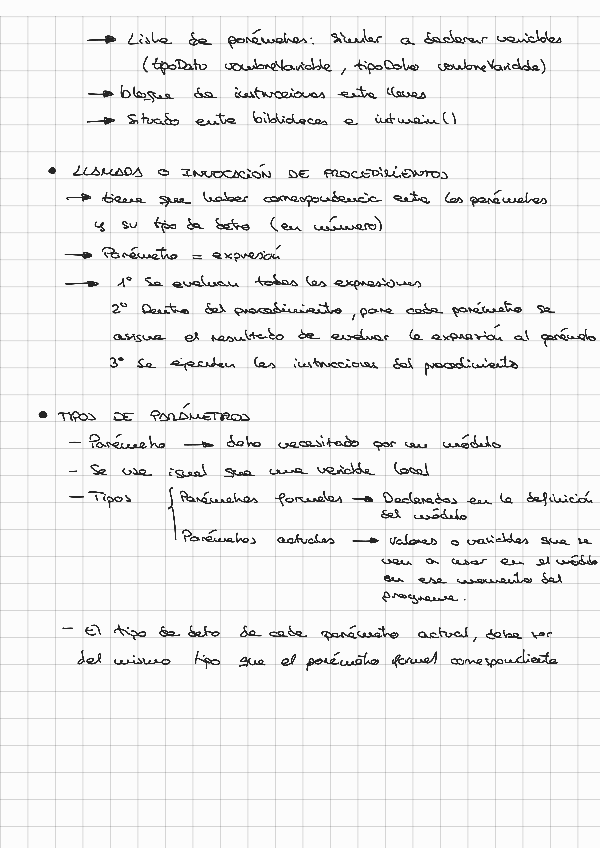 → Lista de parámetros: Similar a declarar variables
(tipoDato nombreVariable, tipoDato nombreVariable)
→ bloque de instrucciones entre llaves
→ Situado entre bibliotecas e int main()
• LLAMADA O INVOCACIÓN DE PROCEDIMIENTOS
→ tiene que haber correspondencia entre los parámetros
y su tipo de dato (en número)
→ Parámetro = expresión
→ 1º Se evaluan todas las expresiones
2º Dentro del procedimiento, para cada parámetro se
asigna el resultado de evaluar la expresión al parámetro
3º Se ejecutan las instrucciones del procedimiento
• TIPOS DE PARÁMETROS
- Parámetro → dato necesitado por un módulo
- Se usa igual que una variable local
- Tipos { Parámetros formales → Declarados en la definición
del módulo
Parámetros actuales → valores o variables que se
van a usar en el módulo
en ese momento del
programa.
- El tipo de dato de cada parámetro actual, debe ser
del mismo tipo que el parámetro formal correspondiente